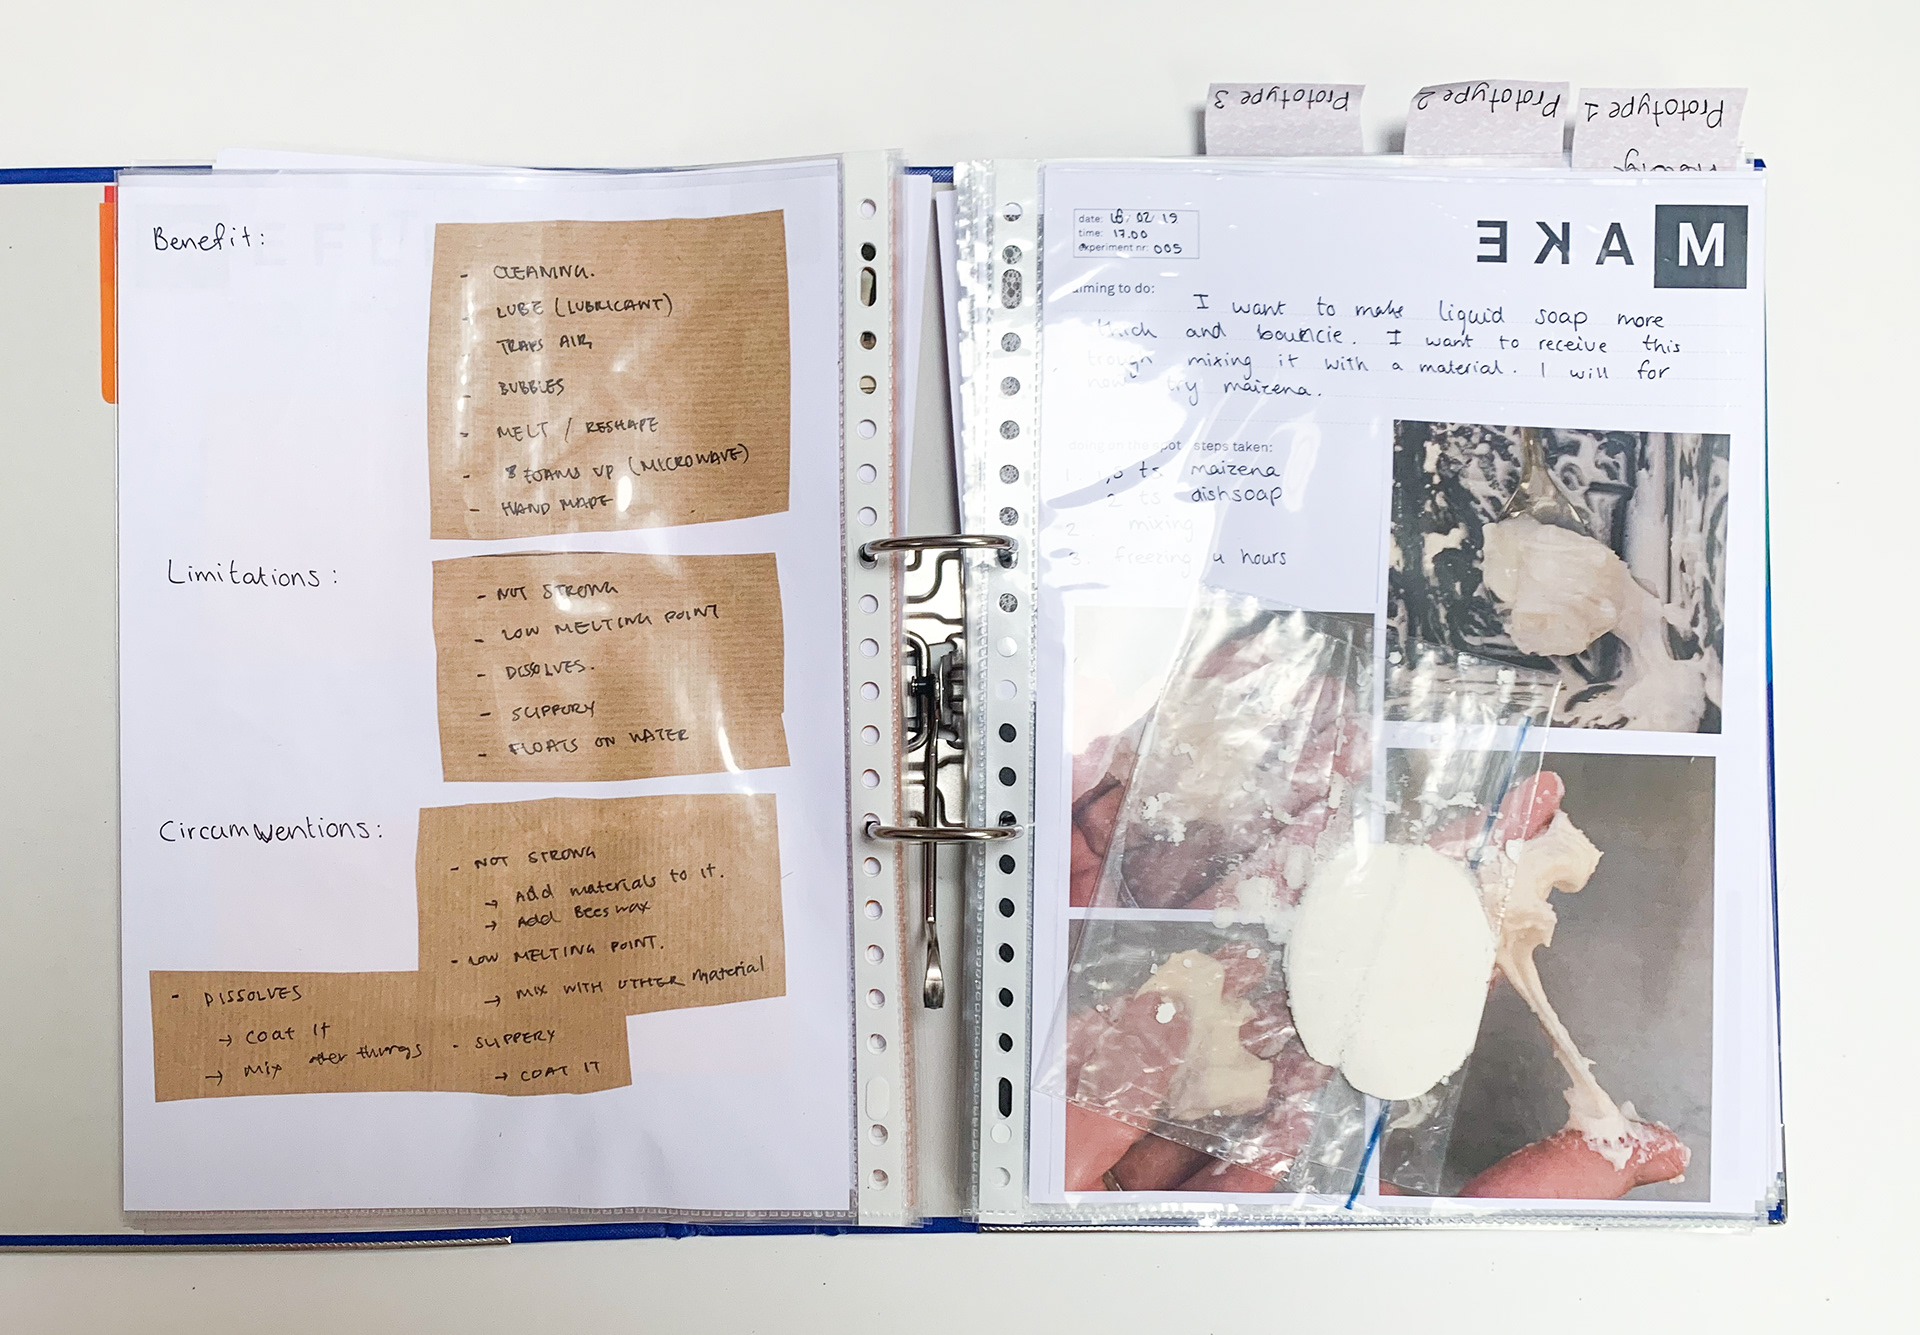 Benefit:
- CLEANING.
- LUBE (LUBRICANT)
- TRAPS AIR
- BUBBLES
- MELT / RESHAPE
- FOAMS UP (MICROWAVE)
- HAND MADE
Limitations:
- NOT STRONG
- LOW MELTING POINT
- DISSOLVES.
- SLIPPORY
- FLOATS ON WATER
Circumventions:
- NOT STRONG
→ Add materials to it.
→ Add Beeswax
- LOW MELTING POINT.
→ MIX WITH OTHER material
- DISSOLVES
→ coat it
→ Mix other things
- SLIPPERY
→ COAT IT
Prototype 3
Prototype 2
Prototype 1
date: 18/02/19
time: 17.00
experiment nr: 005
MAKE
aiming to do:
I want to make liquid soap more
thick and bouncie. I want to receive this
trough mixing it with a material. I will for
now try maizena.
doing on the spot steps taken:
1. ts maizena
2 ts dishsoap
2. mixing
3. freezing 4 hours